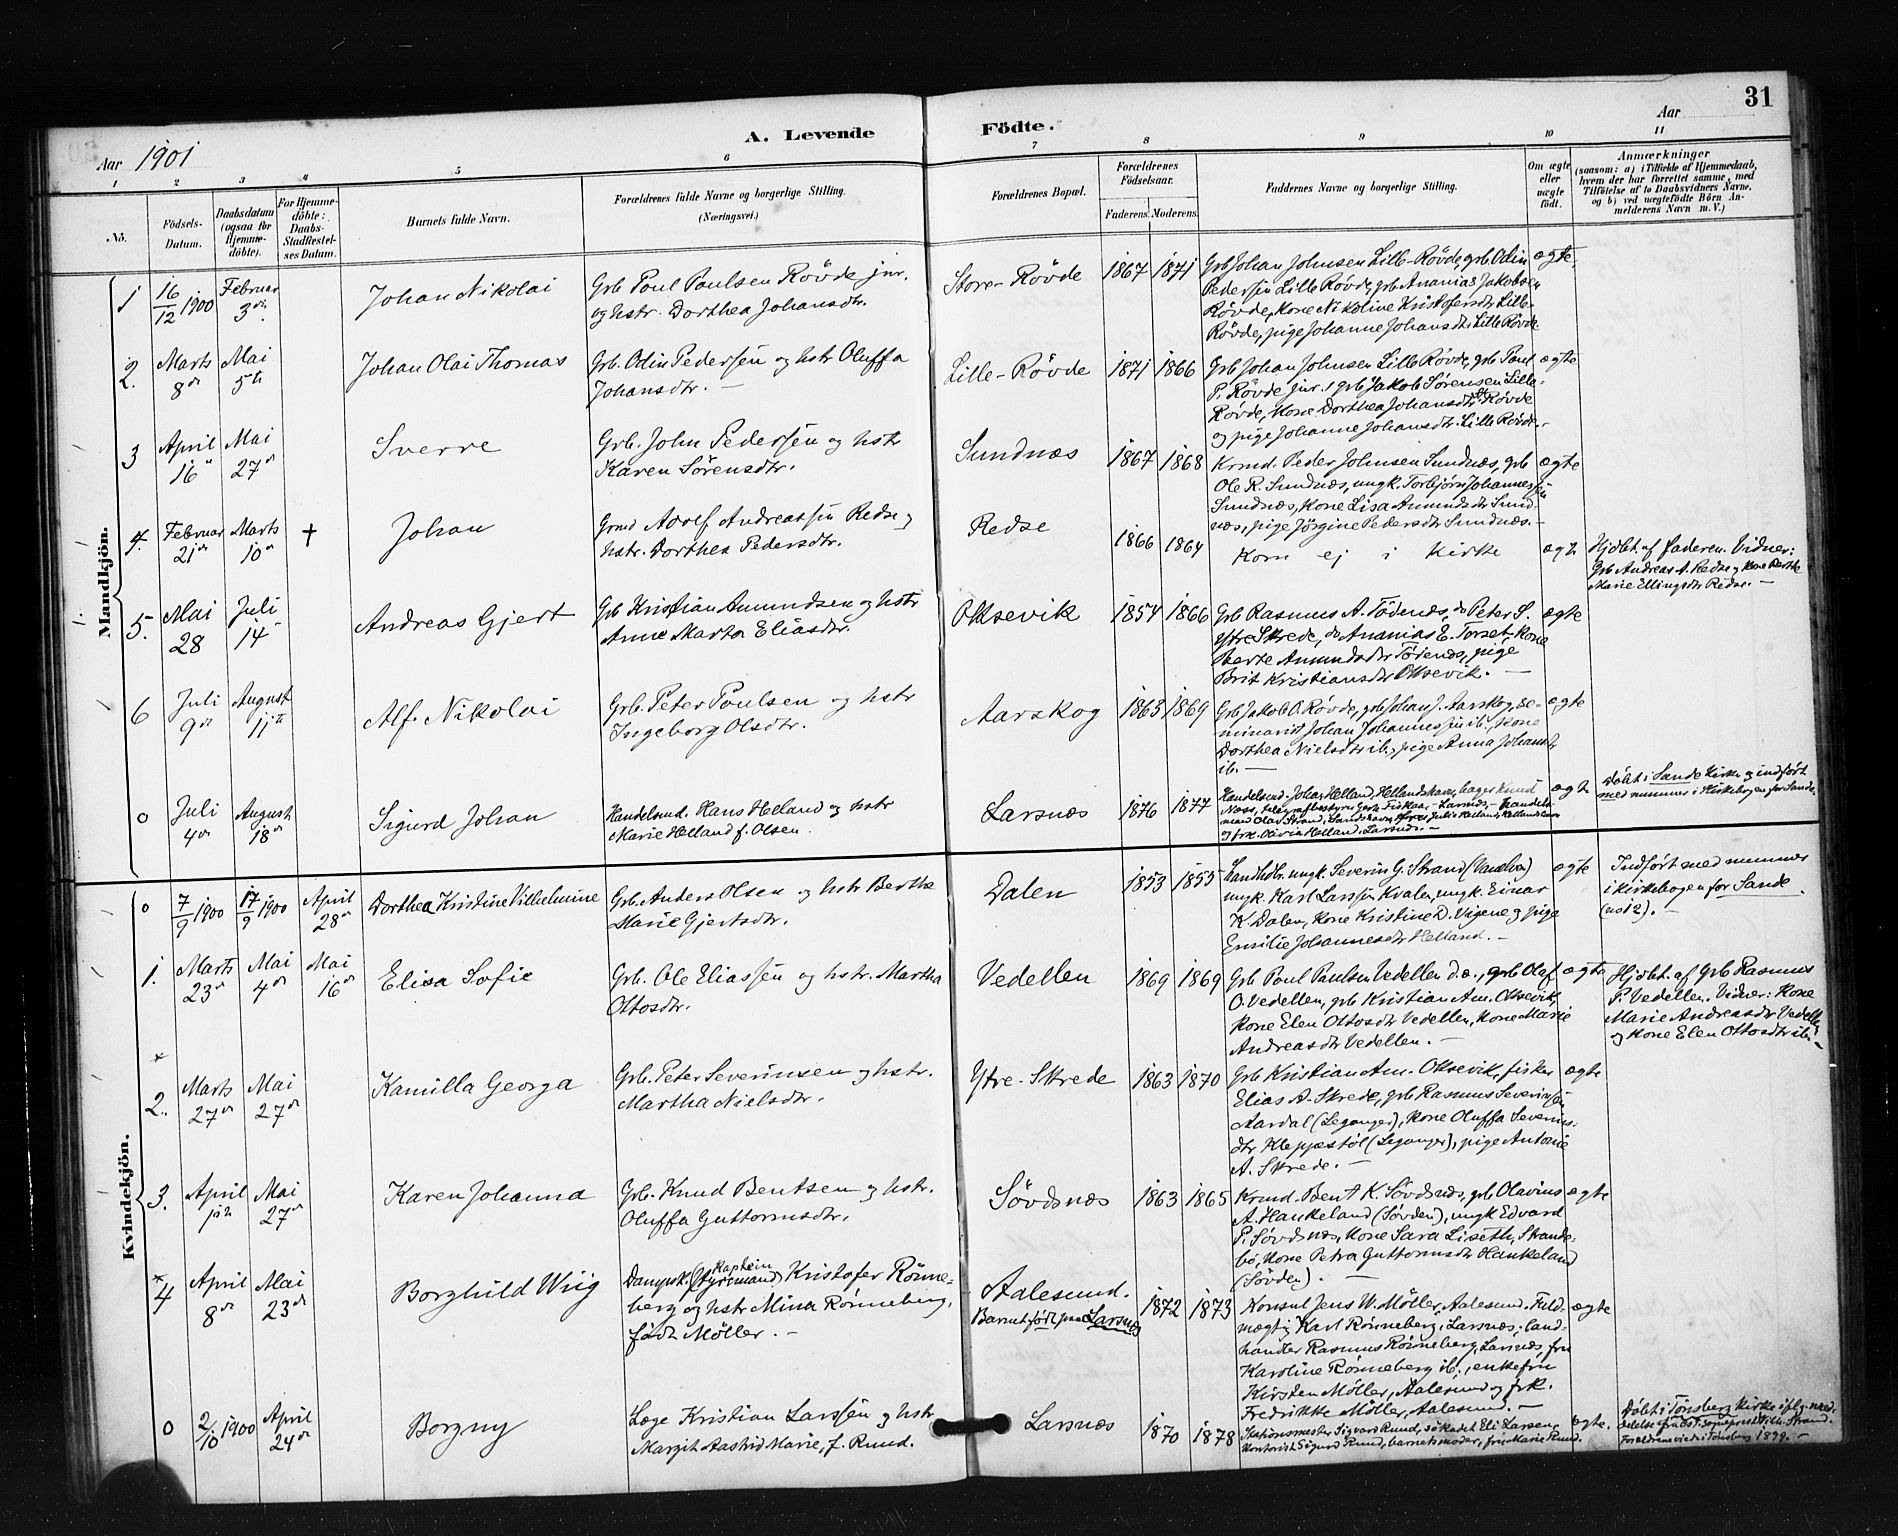 31
A. Levende Födte.
Aar 1901
Aar
1 2 3 4 5 6 7 8 9 10 11
No.
Födsels-
Datum.
Daabsdatum
(ogsaa for
Hjemme-
döbte).
For Hjemme-
döbte:
Daabs-
Stadfæstel-
ses Datum.
Barnets fulde Navn.
Forældrenes fulde Navne og borgerlige Stilling.
(Næringsvei.)
Forældrenes Bopæl.
Forældrenes
Födselsaar.
Faderens. Moderens.
Faddernes Navne og borgerlige Stilling.
Om ægte
eller
uægte
født.
Anmærkninger
(saasom: a) i Tilfælde af Hjemmedaab,
hvem der har forrettet samme, med
Tilföielse af to Daabsvidners Navne.
og b) ved uægtefödte Börn An-
melderens Navn m. V.)
Mandkjön.
1 16/12 1900 Februar 3die Johan Nikolai
Grb. Poul Poulsen Rövde jnr.
og hstr. Dorthea Johansdtr.
Store-Rövde 1867 1871
Grb Johan Johnsen Lille-Rövde, grb Odin
Pedersen Lille Rövde, grb Ananias Jakobsen
Rövde, Kone Nikoline Kristofersdtr Lille-
Rövde, pige Johanne Johansdtr Lille Rövde.
ægte.
2. Marts 8de Mai 5te Johan Olai Thomas
Grb. Odin Pedersen og hstr Oluffa
Johansdtr. —
Lille-Rövde 1871 1866
Grb Johan Johnsen Lille Rövde, grb Paul
P. Rövde jnr., grb Jakob Sörensen Lille-
Rövde, Kone Dorthea Johansdtr St. Rövde
og pige Johanne Johansdtr. Lille Rövde.
ægte
3 April 16 Mai 27de Sverre
Grb. John Pedersen og hstr
Karen Sörensdtr.
Sundnæs 1867 1868
Krmd. Peder Johnsen Sundnæs, grb
Ole R. Sundnæs, ungk. Torbjörn Johannessen
Sundnæs, Kone Lisa Amundsdtr Sund-
næs, pige Jörgine Pedersdtr Sundnæs.—
ægte
4. Februar 21de Marts 10de + Johan
Grmd Adolf Andreassen Redse og
hstr. Dorthea Pedersdtr.
Redse 1866 1864
Kom ej i Kirke
ægte
Hjdbt. af faderen. Vidner:
Grb Andreas A. Redse og Kone Berthe
Marie Ellingsdtr Redse. —
5. Mai 28 Juli 14 Andreas Gjert
Grb Kristian Amundsen og hstr
Anne Marta Eliasdtr.
Oksevik 1854 1866
Grb Rasmus A. Tödenæs, do Peter S.
Ytre Skrede, do Ananias E. Torset, Kone
Berte Amundsdtr Tödenæs, pige
Brit Kristiansdtr Oksevik. —
ægte
6 Juli 9de August 11te Alf Nikolai
Grb. Peter Poulsen og hstr
Ingeborg Olsdtr.
Aarskog 1863 1869
Grb Jakob O. Rövde, grb Johan J. Aarskog, se-
minarist Johan Johannessen ib., Kone
Dorthea Nielsdtr ib., pige Anna Johansdtr
ib. —
ægte
0 Juli 4de August 18de Sigurd Johan
Handelsmd. Hans Helland og hstr
Marie Helland f. Olsen.
Larsnæs 1876 1877
Handelsmd. Johan Helland, Hellandshavn,
Næss, telegrafbestyrer Larsnæs, — Handels-
mand Olav Strand,
og frk. Olivia Helland, Larsnæs. —
ægte
Döbt i Sande Kirke og indfört
med nummer i Kirkebogen for Sande.
Kvindekjön.
0 7/9 1900 17/9 1900 April 28de Dorthea Kristine Vilhelmine
Grb. Anders Olsen og hstr Berthe
Marie Gjertsdtr.
Dalen 1853 1855
Handlsbr. ungk. Severin G. Strand (Vanelven)
ungk. Karl Larssen Kvalen, ungk. Einar
K. Dalen, Kone Kristine D. Vigene og pige
Emilie Johannesdtr Helland. —
ægte
Indfört med nummer
i kirkebogen for Sande
(no 12). —
1. Marts 23de Mai 4de Mai 16de Elisa Sofie
Grb. Ole Eliassen og hstr. Martha
Ottosdtr.
Vedellen 1869 1869
Grb Poul Paulsen Vedellen d.æ., grb Olaf
O. Vedellen, grb Kristian Am. Oksevik,
Kone Elen Ottosdtr Vedellen, Kone Marie
Andreasdtr Vedellen. —
ægte
Hjdbt. af Grb Rasmus
P. Vedellen. Vidner: Kone
Marie Andreasdtr Vedellen
og Kone Elen Ottosdtr ib. —
*
2. Marts 27de Mai 27de Kamilla Georga
Grb. Peter Severinsen og hstr.
Martha Nielsdtr.
Ytre-Skrede 1863 1870
Grb Kristian Am. Oksevik, fisker
Elias A. Skrede, grb Rasmus Severinsen
Aardal (Leganger), Kone Oluffa Severins-
dtr Kleppestöl (Leganger), pige Antonie
A. Skrede. —
ægte
3. April 12 Mai 27de Karen Johanna
Grb. Knud Bentsen og hstr.
Oluffa Guttormsdtr.
Sövdsnæs 1863 1865
Krmd. Bent K. Sövdsnæs, grb Olavius
A. Haukeland (Sövden), ungk Edvard
P. Sövdsnæs, Kone Sara Liseth, Strande-
bö, Kone Petra Guttormsdtr Haukeland
(Sövden). —
ægte
*4 April 8de Mai 23de Borghild Wiig
kaptein
Dampsk. (styrmand) Kristofer Rönne-
berg og hstr Mina Rönneberg,
födt Möller. —
Aalesund.
Barnet födt paa Larsnæs
1872 1873
Konsul Jens W. Möller, Aalesund. Fuld-
mægtig Karl Rönneberg, Larsnæs; land-
handler Rasmus Rönneberg, Larsnæs, fru
Karoline Rönneberg ib., enkefru
Kirsten Möller, Aalesund og frk.
Fredrikke Möller, Aalesund. —
ægte
0 2/10 1900 April 24de Borgny
Læge Kristian Larssen og hstr
Margit Aastrid Marie, f. Ruud.
Larsnæs 1870 1878
Stationsmester Sigvard Ruud, sökadet Eli Larsen,
Kontorist Sigurd Ruud, barnets moder, fru Marie Ruud.
ægte.
Döbt i Tönsberg Kirke ifölge med-
delelse fra sogneprest Vilh. Strand.
Forældrene viet i Tönsberg 1899. —